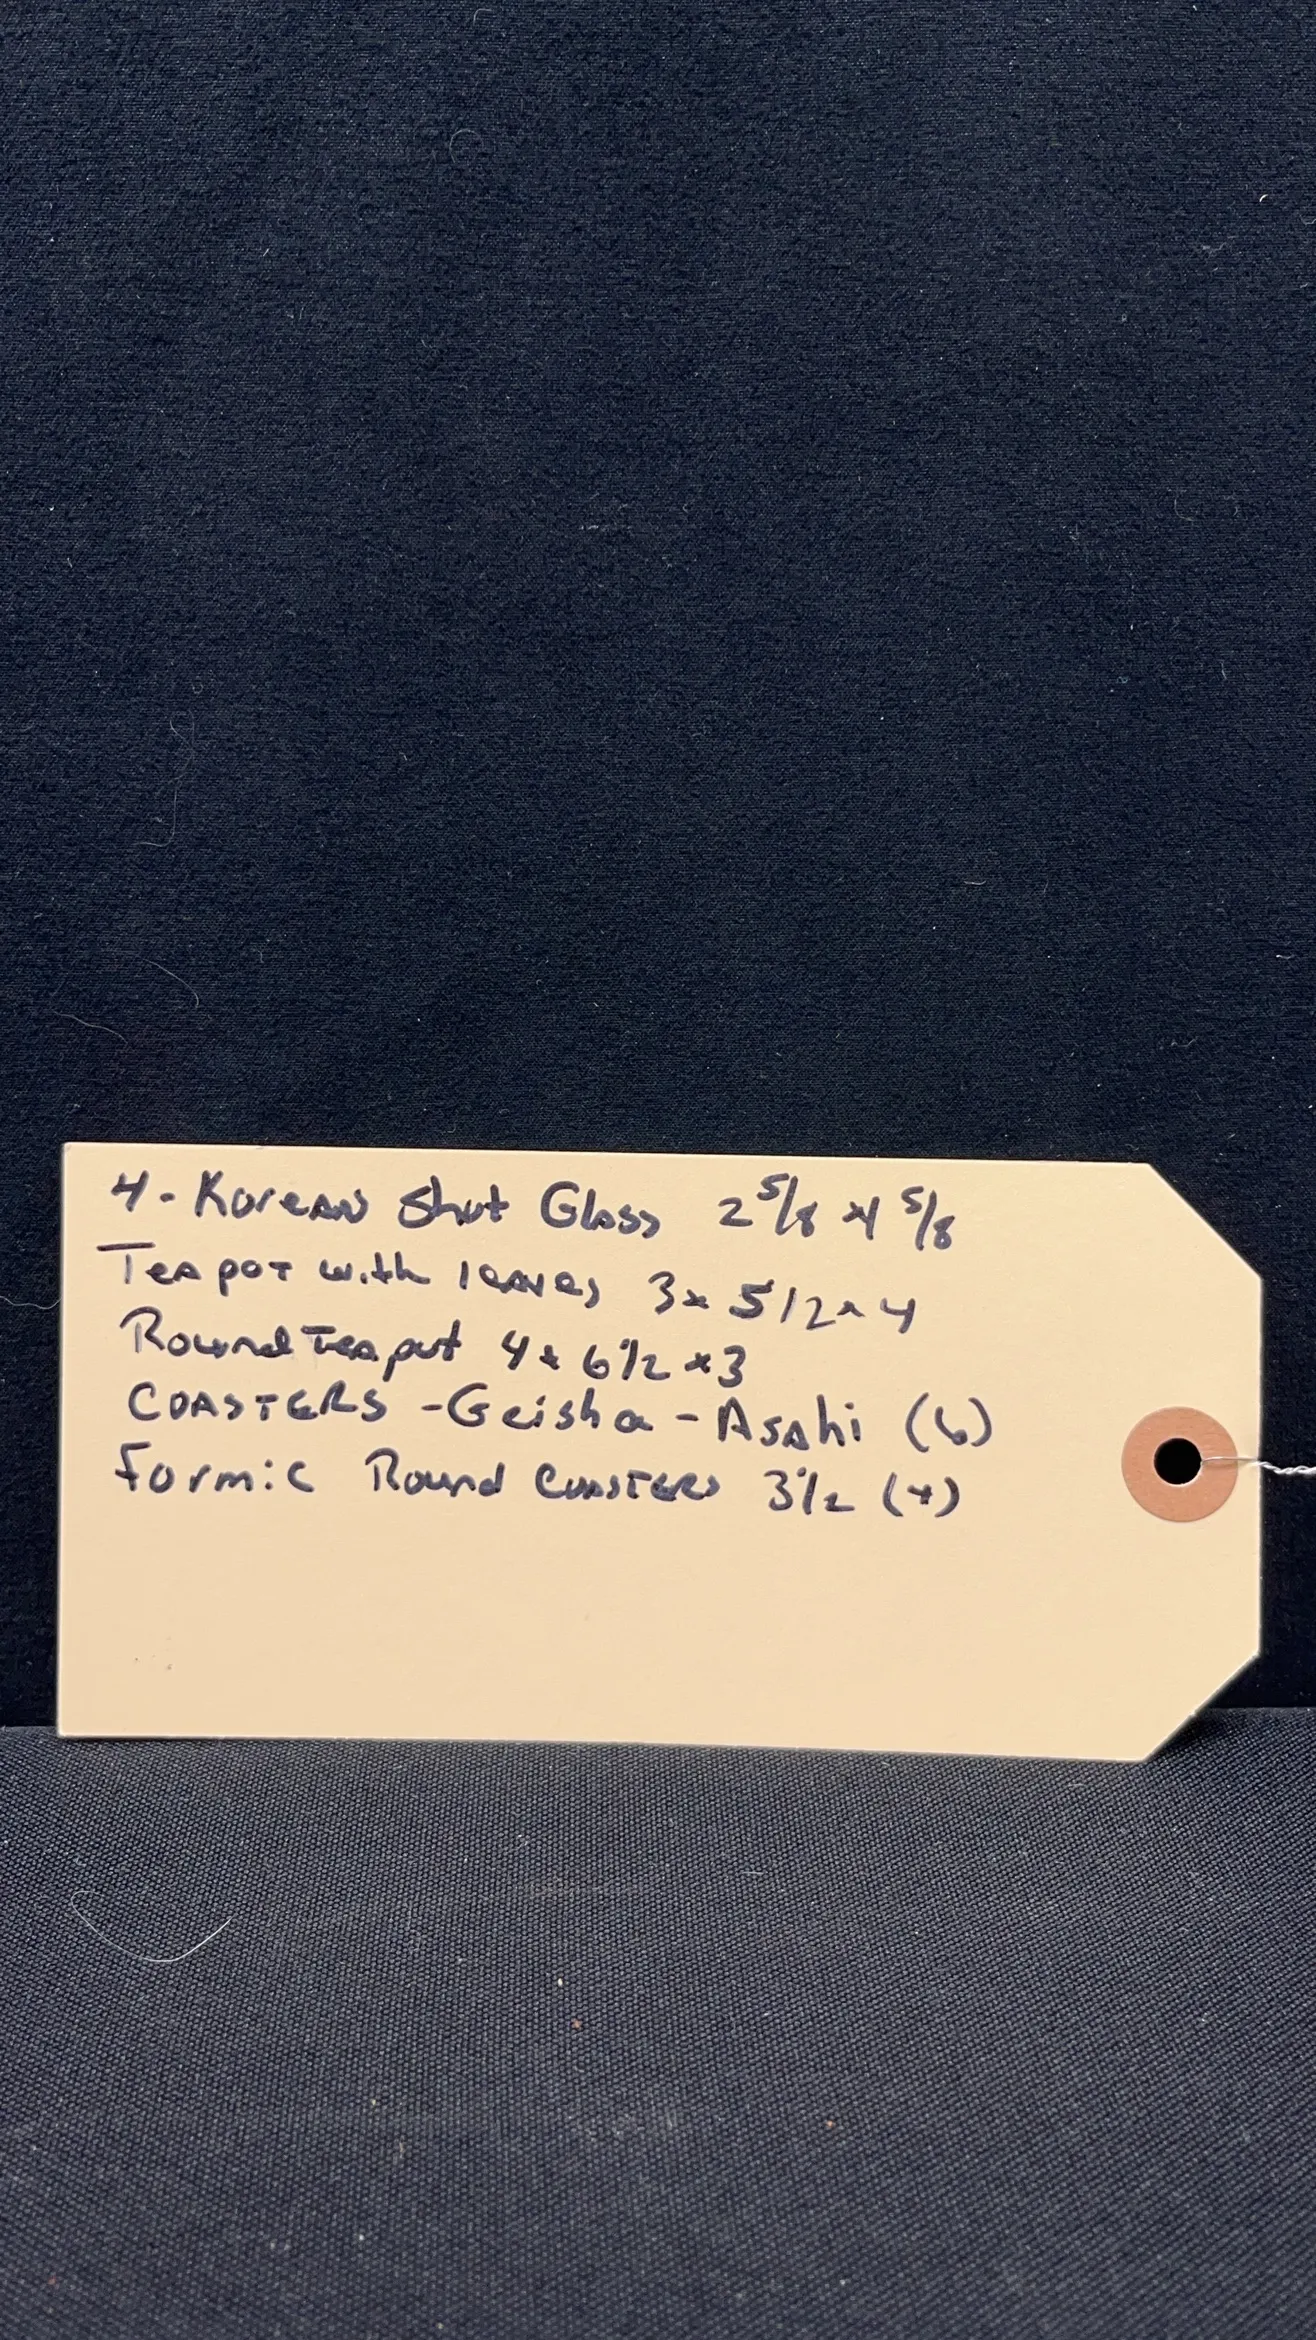 4-Korean Shot Glass 2 5/8 x 4 5/8
Teapot with leaves 3 x 5 1/2 x 4
Round Teapot 4 x 6 1/2 x 3
COASTERS - Geisha - Asahi (6)
Formic Round Coasters 3 1/2 (4)